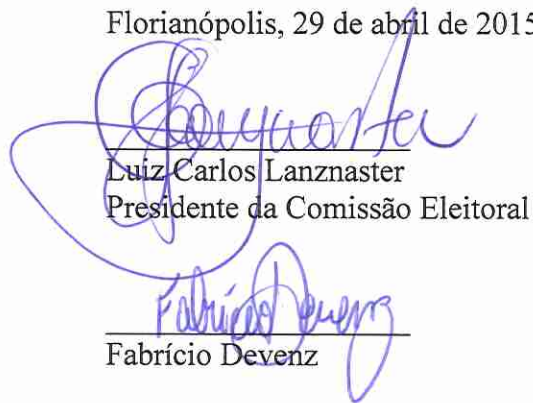 Florianópolis, 29 de abril de 2015
Luiz Carlos Lanznaster
Presidente da Comissão Eleitoral
Fabrício Devenz
Fabrício Devenz